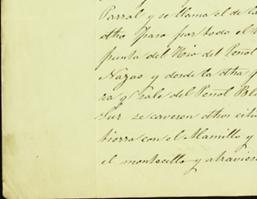 Parral y se llama el de la
dtho Paso por todo el
punta del Rio del Peñol
Nazao y donde la dtha
za y sale del Peñol Bla
Sur se caveron dthos
tierra con el Mamillo y
el montecillo y atravies